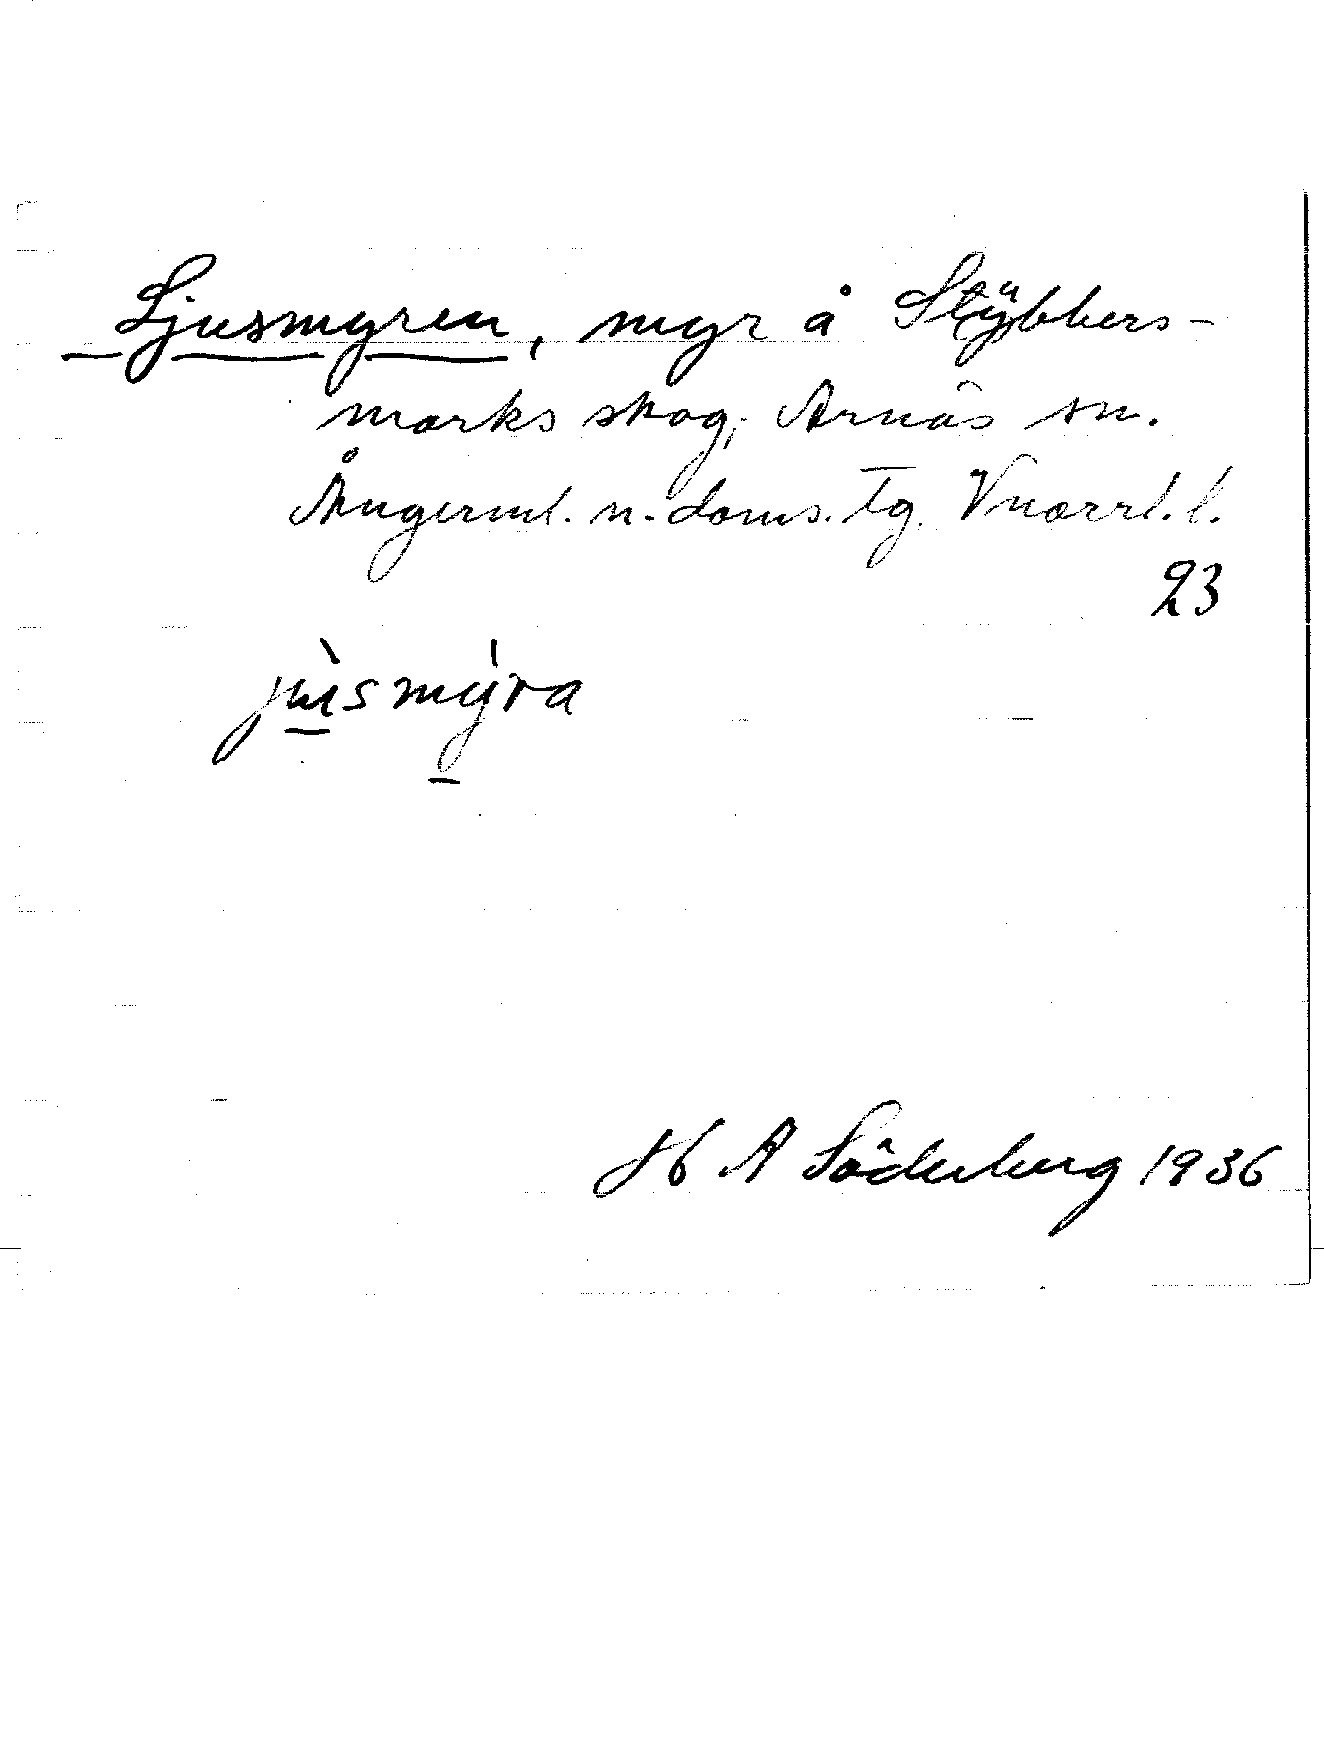 Ljusmyren, myr å Stybbers-
marks skog, Arnäs sn.
Ångerml. n. doms. tg. Vnorrl. l.
23
jùsmy̍ra
H A Söderberg 1936